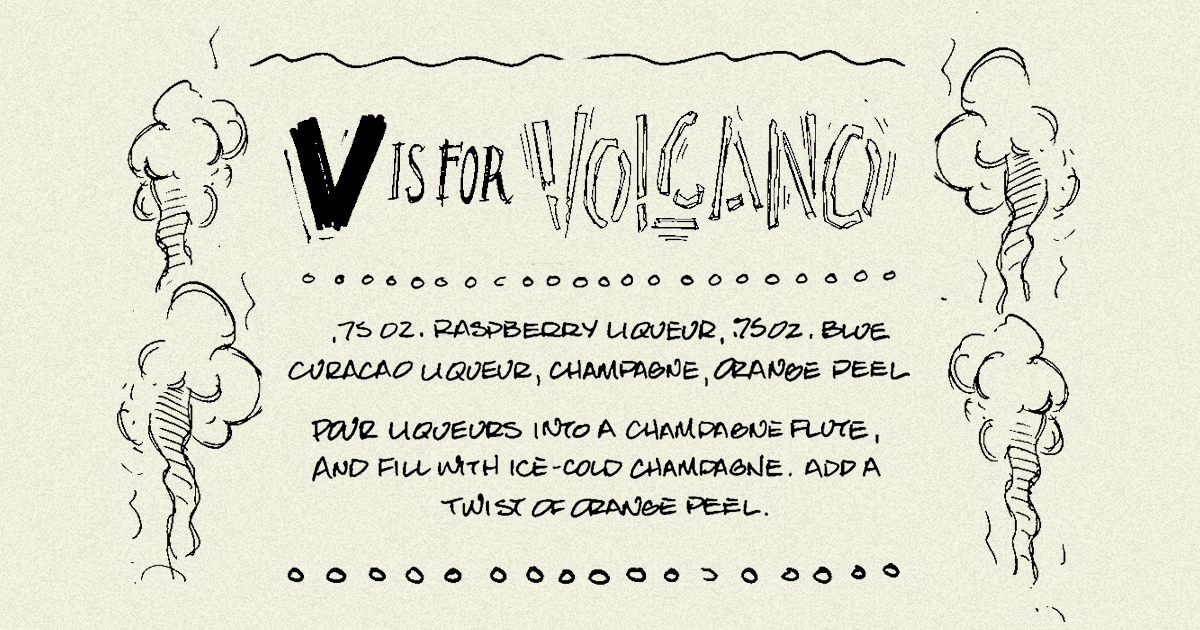 V IS FOR VOLCANO
.75 OZ. RASPBERRY LIQUEUR, .75 OZ. BLUE
CURACAO LIQUEUR, CHAMPAGNE, ORANGE PEEL
POUR LIQUEURS INTO A CHAMPAGNE FLUTE,
AND FILL WITH ICE-COLD CHAMPAGNE. ADD A
TWIST OF ORANGE PEEL.